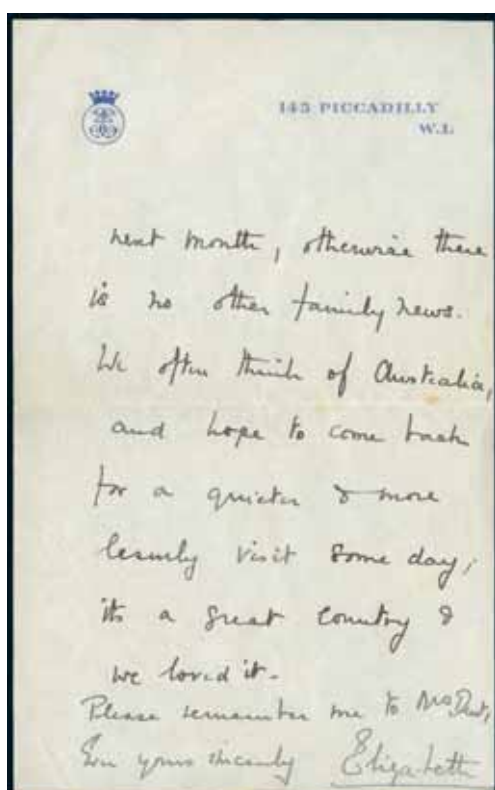 145 PICCADILLY
W.1.
next month, otherwise there
is no other family news.
We often think of Australia,
and hope to come back
for a quieter & more
lesurly visit some day,
its a great country &
we loved it.
Please remember me to Mrs
Ever yours sincerely Elizabeth